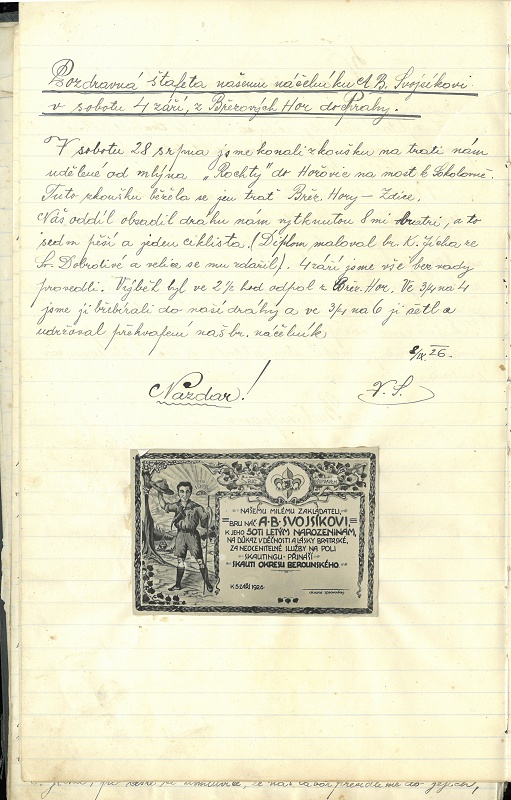 Pozdravná štafeta našemu náčelníku A. B. Svojsíkovi
v sobotu 4 září, z Březových Hor do Prahy.
V sobotu 28 srpna jsme konali zkoušku na trati nám
udělené od mlýna „Rochty" do Hořovic na most k Sokolovně.
Tuto zkoušku běžela se jen trať Břez. Hory – Zdice.
Náš oddíl obsadil dráhu nám vytknutou 8mi bratri, a to
sedm pěší a jeden ciklista. (Diplom maloval br. K. Jícha ze
Sv. Dobrotivé a velice se mu zdařil). 4 září jsme vše bez vady
provedli. Výběh byl ve 2½ hod odpol z Břez. Hor. Ve ¾ na 4
jsme ji přebírali do naší dráhy a ve ¾ na 6 ji četl a
udržoval překvapení náš br. náčelník.
8/IX. 26.
Nazdar!
V. S.
NAŠEMU MILÉMU ZAKLADATELI,
BRU NÁČ. A·B·SVOJSÍKOVI,
K JEHO 50TI LETÝM NAROZENINÁM,
NA DŮKAZ VDĚČNOSTI A LÁSKY BRATRSKÉ,
ZA NEOCENITELNÉ SLUŽBY NA POLI
SKAUTINGU – PŘINÁŠÍ
SKAUTI OKRESU BEROUNSKÉHO.
K 5 ZÁŘÍ 1926